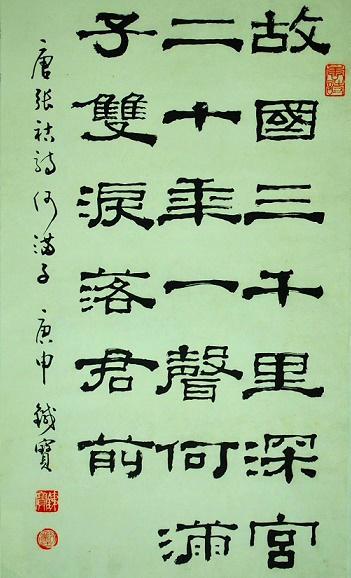 故國三千里深宮
二十年一聲何滿
子雙淚落君前
唐張祜詩何滿子 庚申 鐵寶